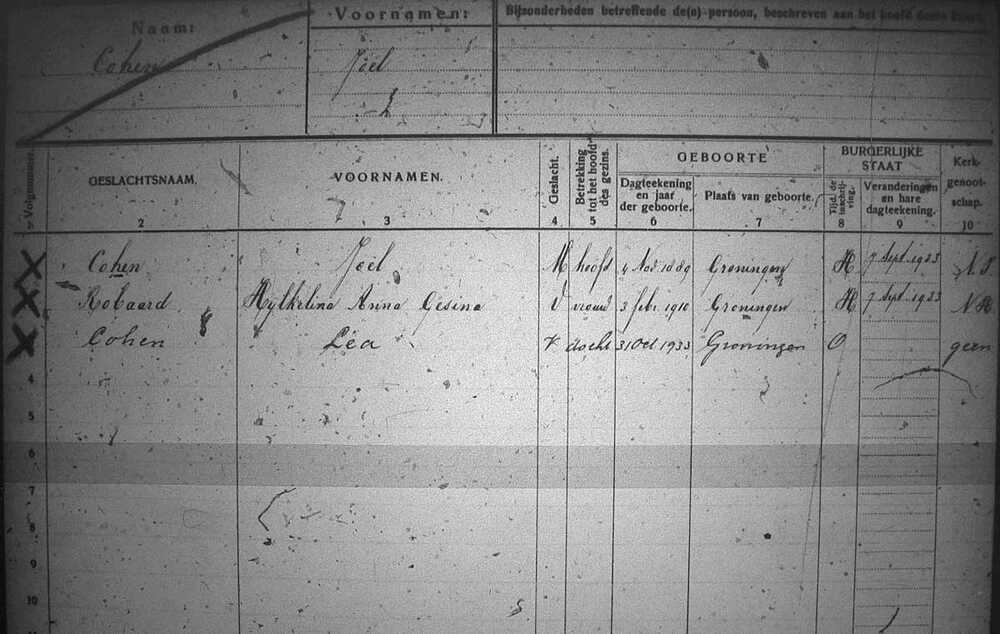 Naam:
Voornamen:
Bijzonderheden betreffende de(n) persoon, beschreven aan het hoofd dezer kaart.
Cohen
Joël
Volgnummer.
GESLACHTSNAAM.
VOORNAMEN.
Geslacht.
Betrekking tot het hoofd des gezins.
GEBOORTE
Dagteekening en jaar der geboorte.
Plaats van geboorte.
BURGERLIJKE STAAT
Tijd. de inschrijving.
Veranderingen en hare dagteekening.
Kerkgenootschap.
2 3 4 5 6 7 8 9 10
Cohen Joël M hoofd 4 Nov 1889 Groningen H 7 Sept. 1933 N.I.
Robaard Hylkelina Anna Gesina V vrouw 3 febr 1910 Groningen H 7 Sept. 1933 NH
Cohen Léa V docht 31 Oct 1933 Groningen O geen
4
5
6
7
8
9
10